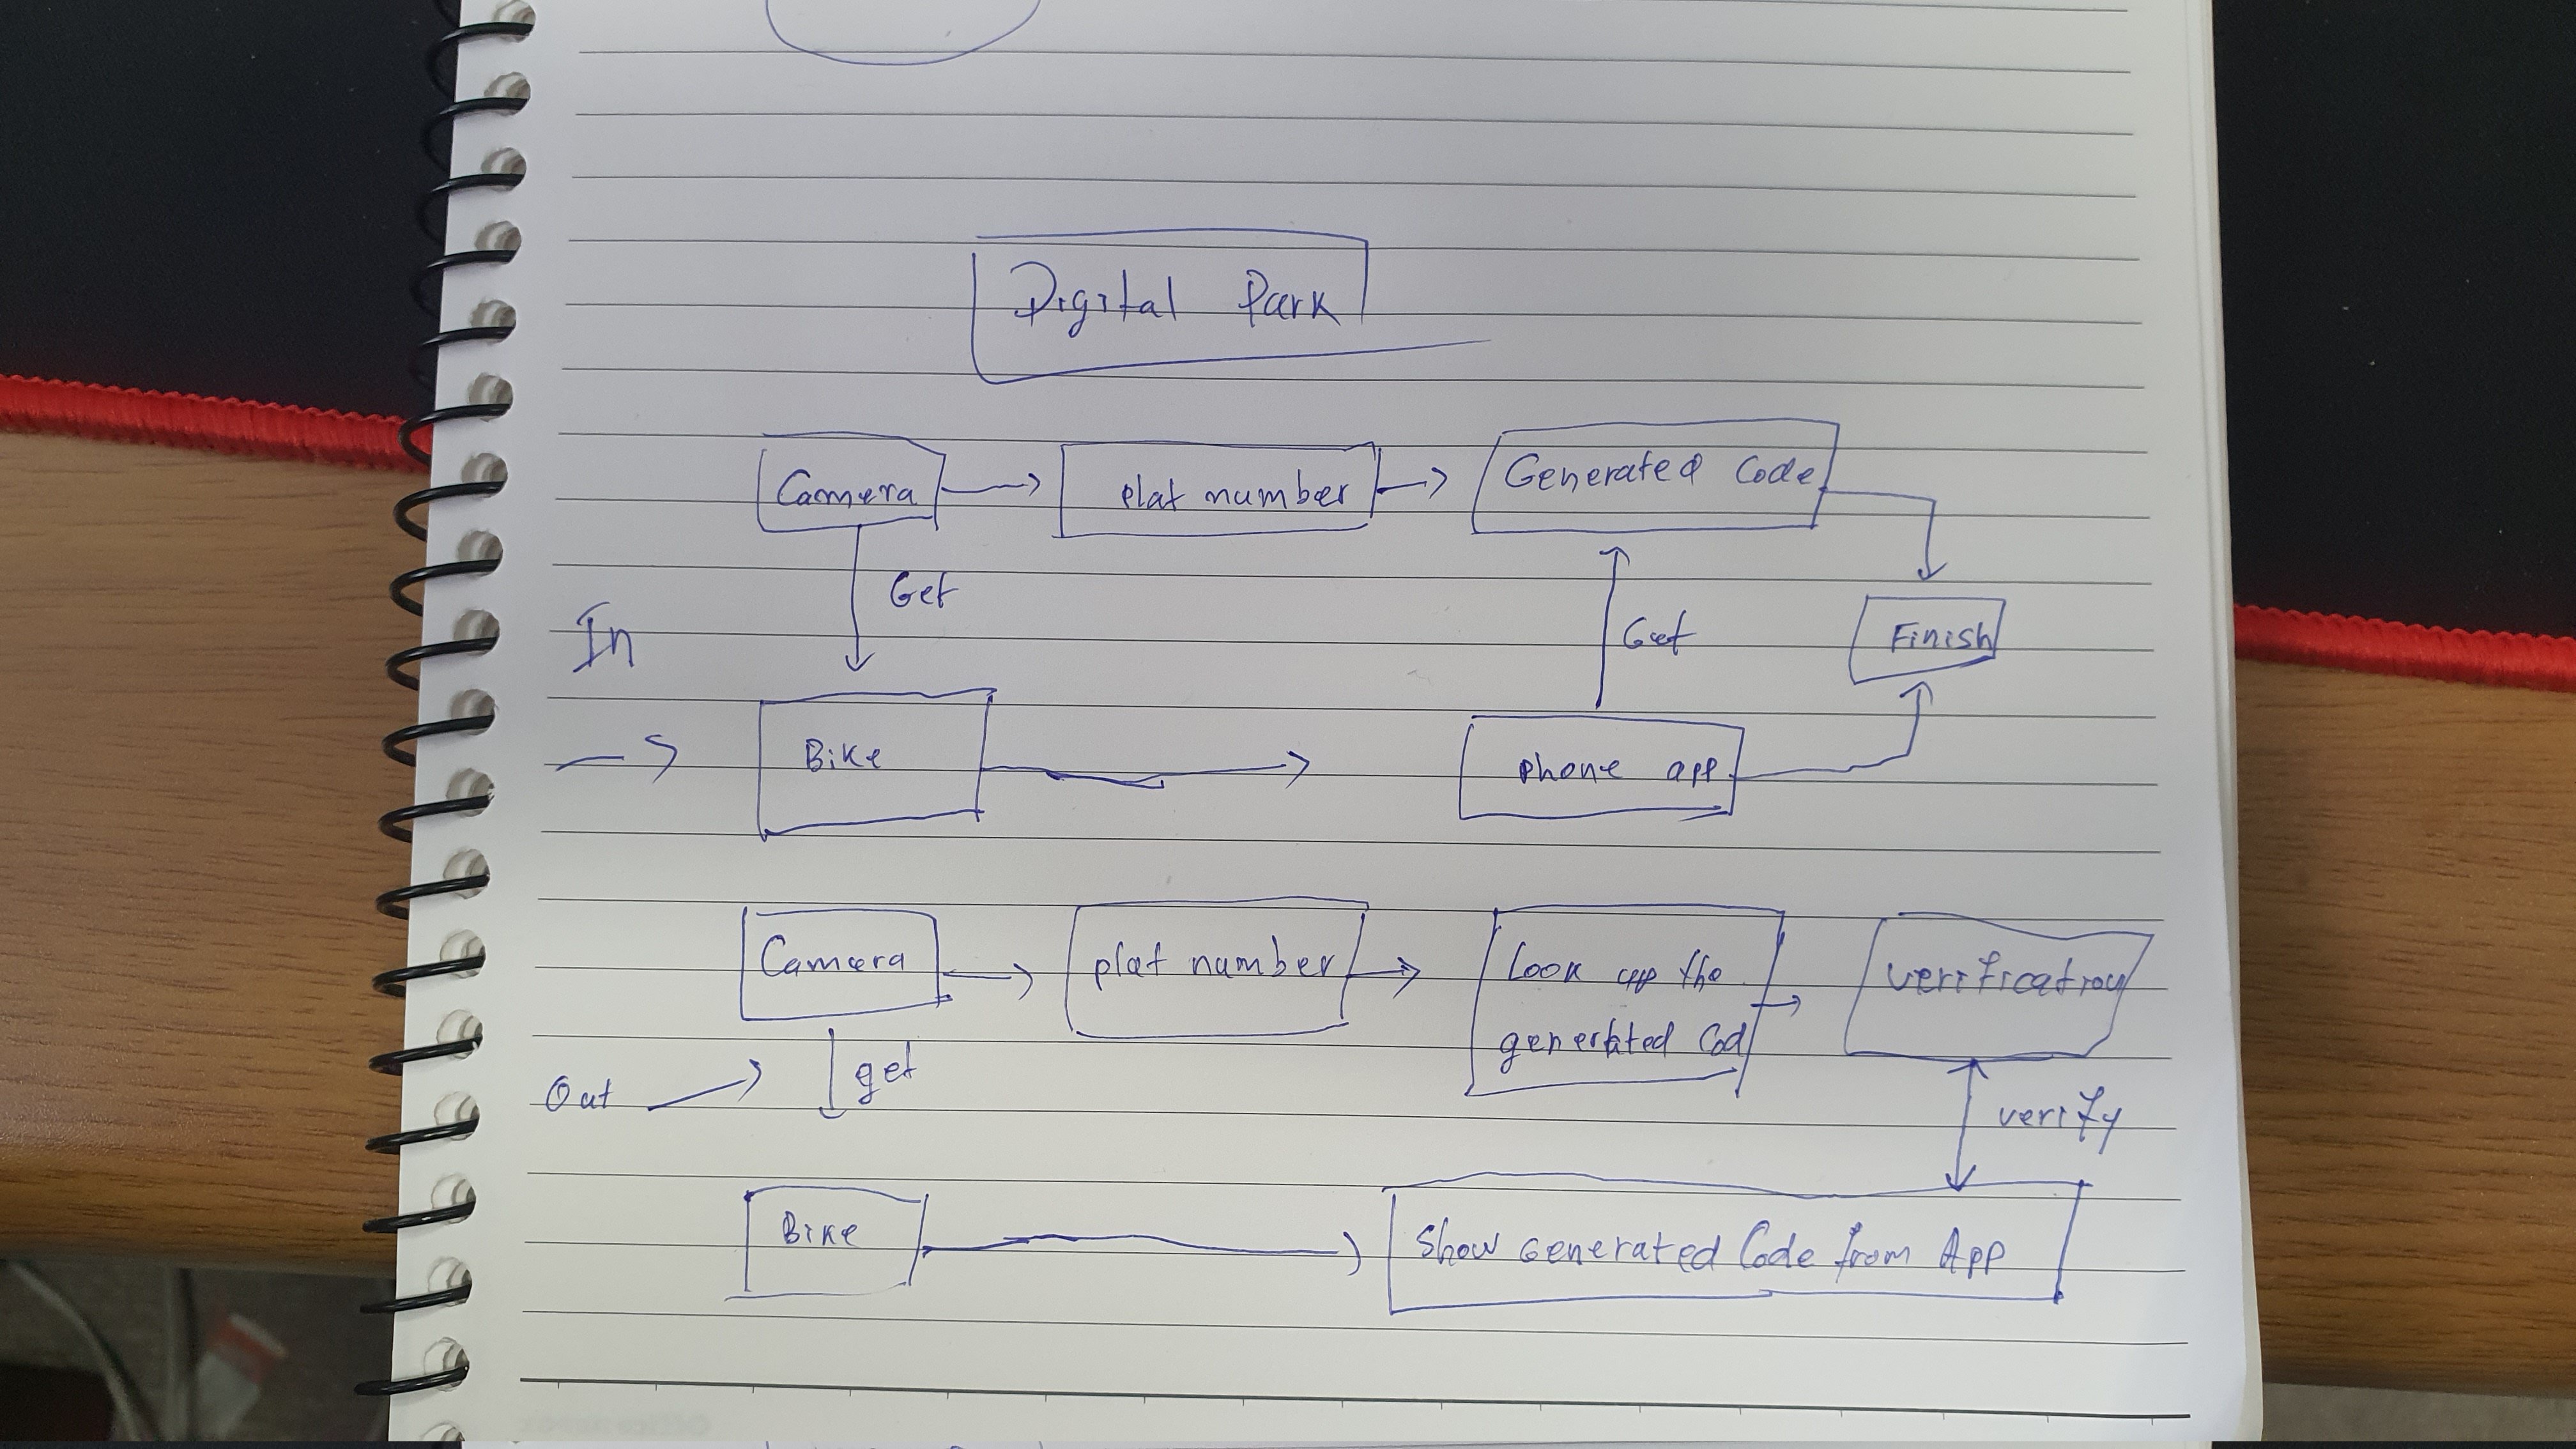 Digital Park
Camera
plat number
Generated Code
Get
In
Get
Finish
Bike
phone app
Camera
plat number
Look up the
generated Cod
verification
Out
get
verify
Bike
Show Generated Code from App